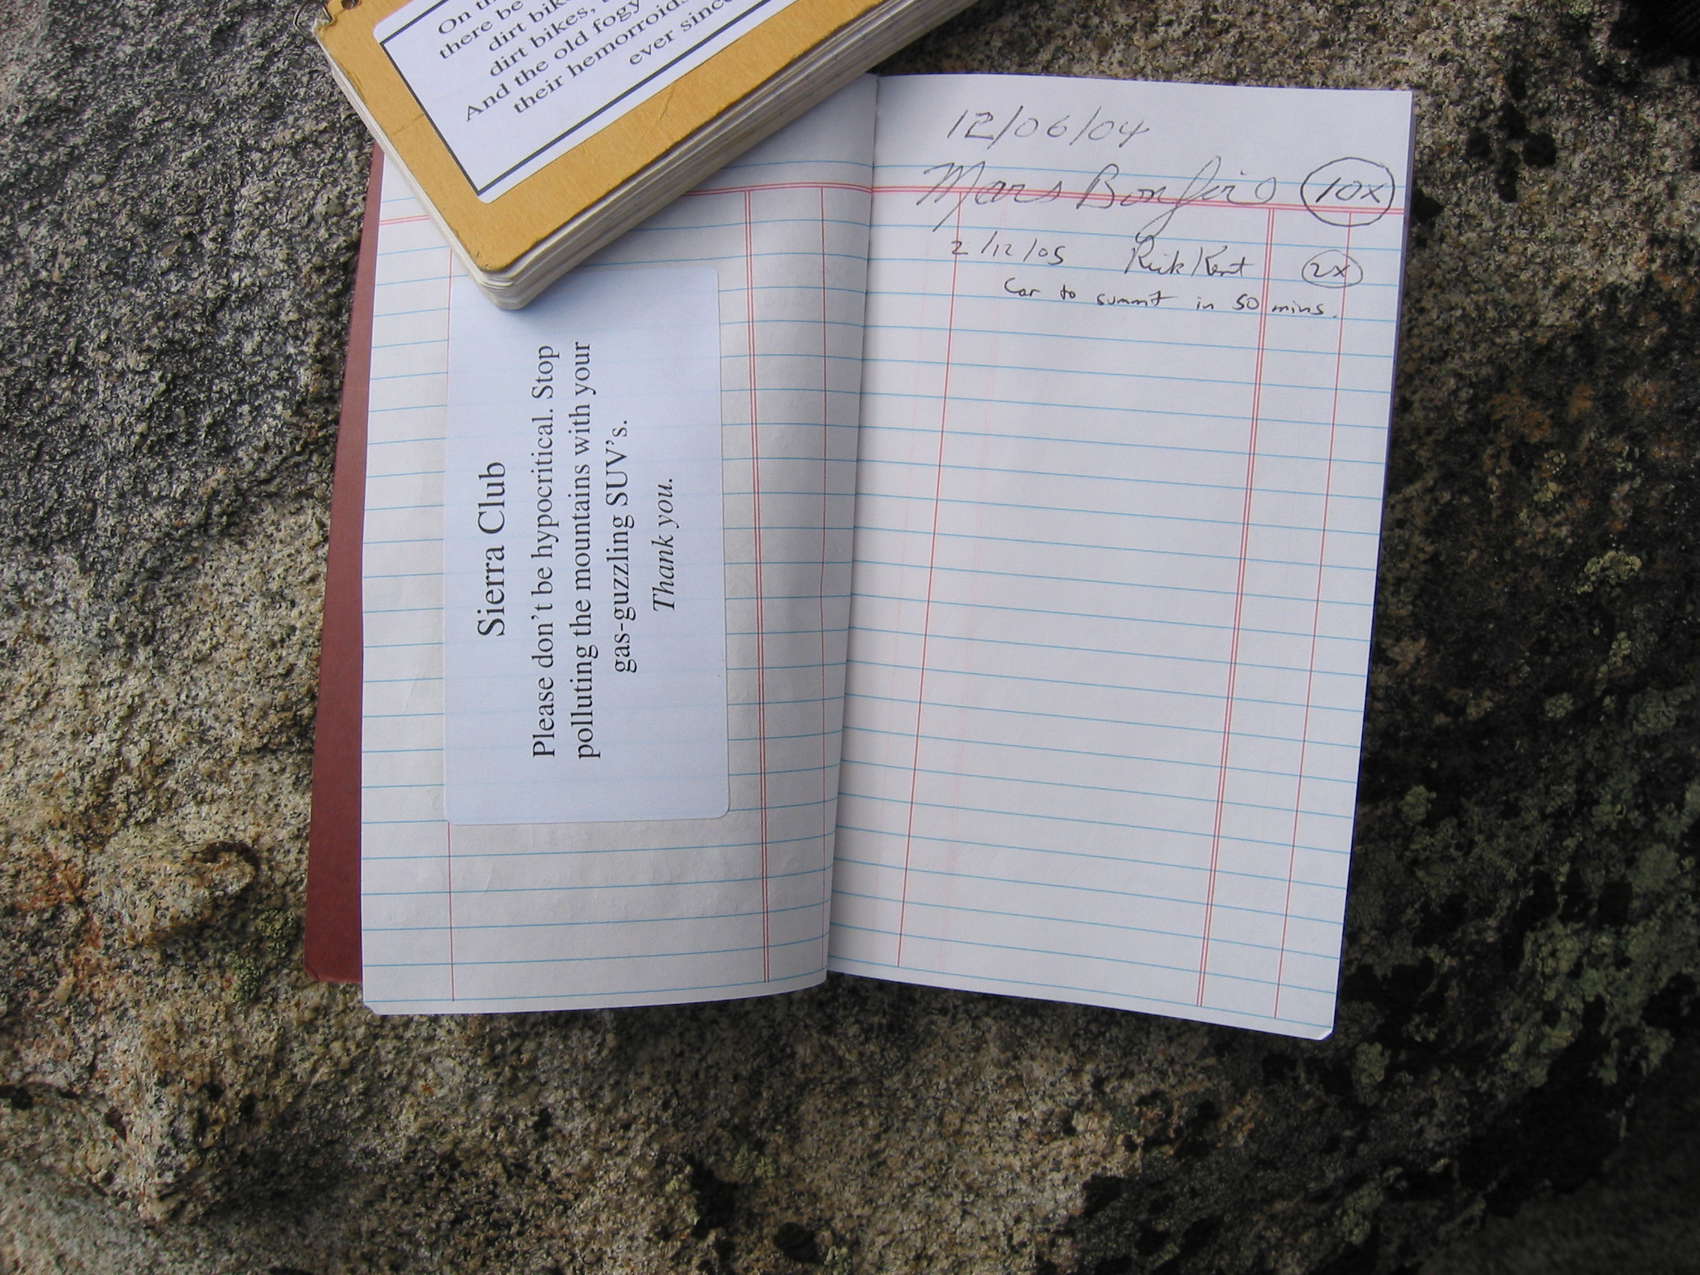 On th
there be
dirt bik
dirt bikes,
And the old fogy
their hemorroids
ever since
Sierra Club
Please don't be hypocritical. Stop
polluting the mountains with your
gas-guzzling SUV's.
Thank you.
12/06/04
Mars Bonfire 10x
2/12/05 Rick Kent 2x
Car to summit in 50 mins.